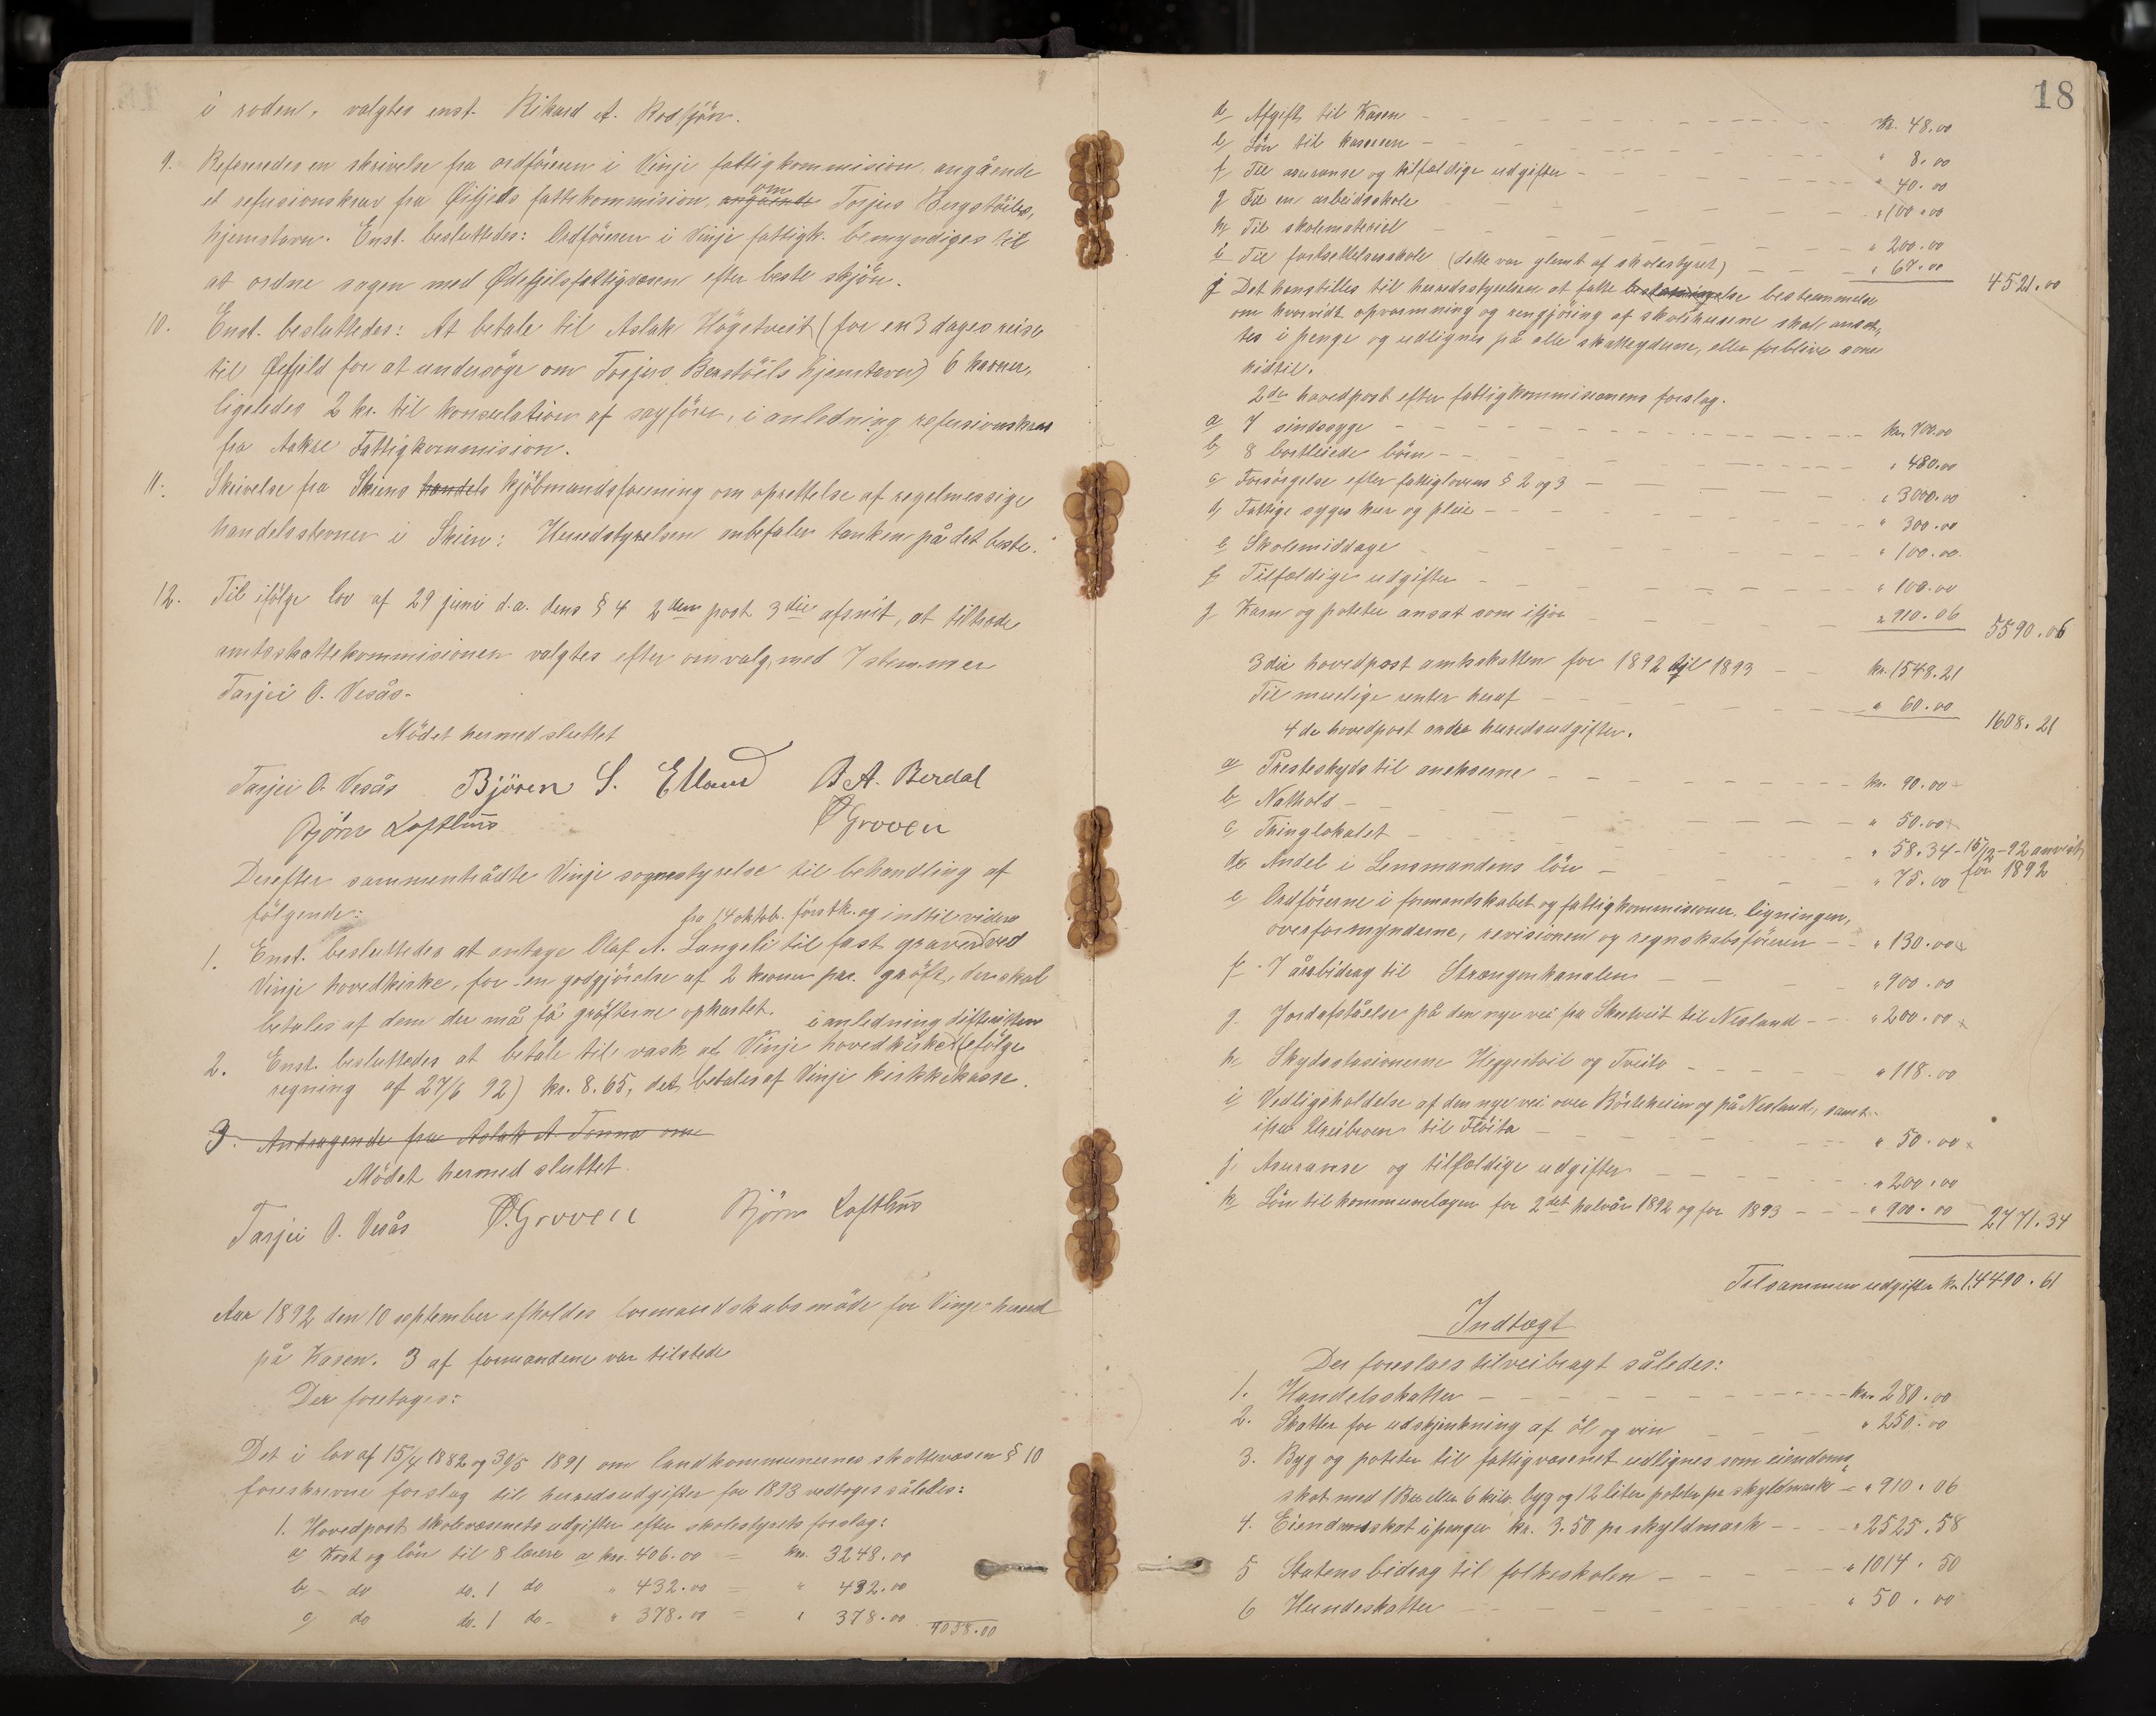 i roden, valgtes enst. Rikard A. Rodtjön.
9. Refereredes en skrivelse fra ordföreren i Vinje fattigkommision, angående
et refusionskrav fra Öifjelds fattikommision, angående om Torjus Bergstöils,
hjemstavn. Enst. besluttedes: Ordföreren i Vinje fattigk. bemyndiges til
at ordne sagen med Öifjelsfattigvæsen efter beste skjön.
10. Enst. besluttedes: At betale til Aslak Högetveit (for en 3 dages reise
til Öifjeld for at undersöge om Torjus Berstöils hjemstavn) 6 kroner,
ligeledes 2 kr. til konsulation af sagförer, i anledning refusionskrav
fra Aakre Fattigkommision.
11. Skrivelse fra Skiens handels kjöbmandsforening om oprettelse af regelmessige
handelsstevner i Skien: Herredstyrelsen anbefaler tanken på det beste.
12. Til ifölge lov af 29 juni d.a. dens § 4 2den post 3die afsnit, at tiltræde
amtsskattekommisionen valgtes efter omvalg, med 7 stemmer
Tarjei O. Vesås.
Mödet hermed sluttet
Tarjei O. Vesås Björen S. Edland B A. Berdal
Björn Lofthus O Groven
Derefter sammentrådte Vinje sognestyrelse til behandling af
fölgende:
fra 14 oktob. förstk. og indtil videre
1. Enst. besluttedes at antage Olaf A. Langeli til fast graver ved
Vinje hovedkirke, for en godgjörelse af 2 kroner pr. gröft, der skal
betales af dem der må få gröfterne opkastet.
i anledning difteritten
2. Enst. besluttedes at betale til vask af Vinje hovedkirke (ifölge
regning af 27/6 92) kr. 8.65, det betales af Vinje kirkekasse.
3. Andragende fra Aslak A. Tonna om
Mödet hermed sluttet.
Tarjei O. Vesås O. Groven Björn Lofthus
Aar 1892 den 10 september afholdes formandskabsmöde for Vinje herred
på Kasen. 3 af formandene var tilstede
Der foretages:
Det i lov af 15/4 1882 og 30/5 1891 om landkommunernes skattevæsen § 10
foreskrevne forslag til herredsudgifter for 1893 vedtoges således:
1. Hovedpost skolevæsenets udgifter efter skolestyrets forslag:
a) Kost og lön til 8 lærere a kr. 406.00 = kr. 3248.00
b - do do. 1 do " 432.00 = " 432.00
c) do do. 1 do - " 378.00 = " 378.00 4058.00
18
d Afgift til Kasen - - - kr. 48.00
e) Lön til kasereren - - - " 8.00
f Til asuranse og tilfældige udgifter - - - " 40.00
g Til en arbeidsskole - - - " 100.00
h) Til skolemateriel - - - " 200.00
i Til fortsættelsesskole (dette var glemt af skolestyret) - - - " 67.00
4521.00
j Det henstilles til herredsstyrelsen at fatte bestemmelse
om hvorvidt opvarmning og rengjöring af skolehusene skal ansæt-
tes i penge og udlignes på alle skatteyderne, eller forblive som
hidtil.
2den hovedpost efter fattigkommisionens forslag.
a 7 sindssyge - - - kr. 700.00
b) 8 bortleiede börn - - - " 480.00
c Forsörgelse efter fattiglovens § 2 og 3 - - - " 3000.00
d) Fattige syges kur og pleie - - - " 300.00
e Skolemiddage - - - " 100.00
f Tilfældige udgifter - - - " 100.00
g Korn og poteter ansatt som ifjor - - - " 910.06
5590.06
3die hovedpost amtsskatten for 1892 til 1893 - - kr. 1548.21
Til muelige renter heraf - - - " 60.00
1608.21
4de hovedpost andre herredsudgifter.
a Presteskyds til anekserne - - - kr. 90.00
b Nathold - - - " 50.00
c Thinglokalet - - - " 58.34 - 15/12 - 92 anvist
d Andel i Lensmandens lön - - - " 75.00 for 1892
e Ordförerne i formandskabet og fattigkommisionen, ligningen,
overformynderne, revisionen og regnskabsföreren - - " 130.00
f 7 årsbidrag til Strængenkanalen - - - " 900.00
g. Jordafståelse på den nye vei fra Skertveit til Nesland - - " 200.00
h Skydsstasionerne Heggestoil og Tveito - - - " 118.00
i Vedligeholdelse af den nye vei over Börteheien og på Nesland, samt
ifra til Flöita - - - " 50.00
j. Asuranse og tilfældige udgifter - - - " 200.00
k Lön til kommunelægen for 2det halvår 1892 og for 1893 - - - " 900.00
2771.34
Tilsammen udgifter kr. 14490.61
Indtægt
Der foreslaes tilveibragt således:
1. Handelsskatter - - - kr. 280.00
2. Skatter for udskjænkning af öl og vin - - - " 250.00
3. Byg og poteter til fattigvæsenet udlignes som eiendoms-
skat med 1 Bis eller 6 kilo byg og 12 liter poteter pr skyldmark - " 910.06
4. Eiendomsskat i penger kr. 3.50 pr skyldmark - - - " 2525.58
5 Statens bidrag til folkeskolen - - - " 1014.50
6 Hundeskatter - - - " 50.00